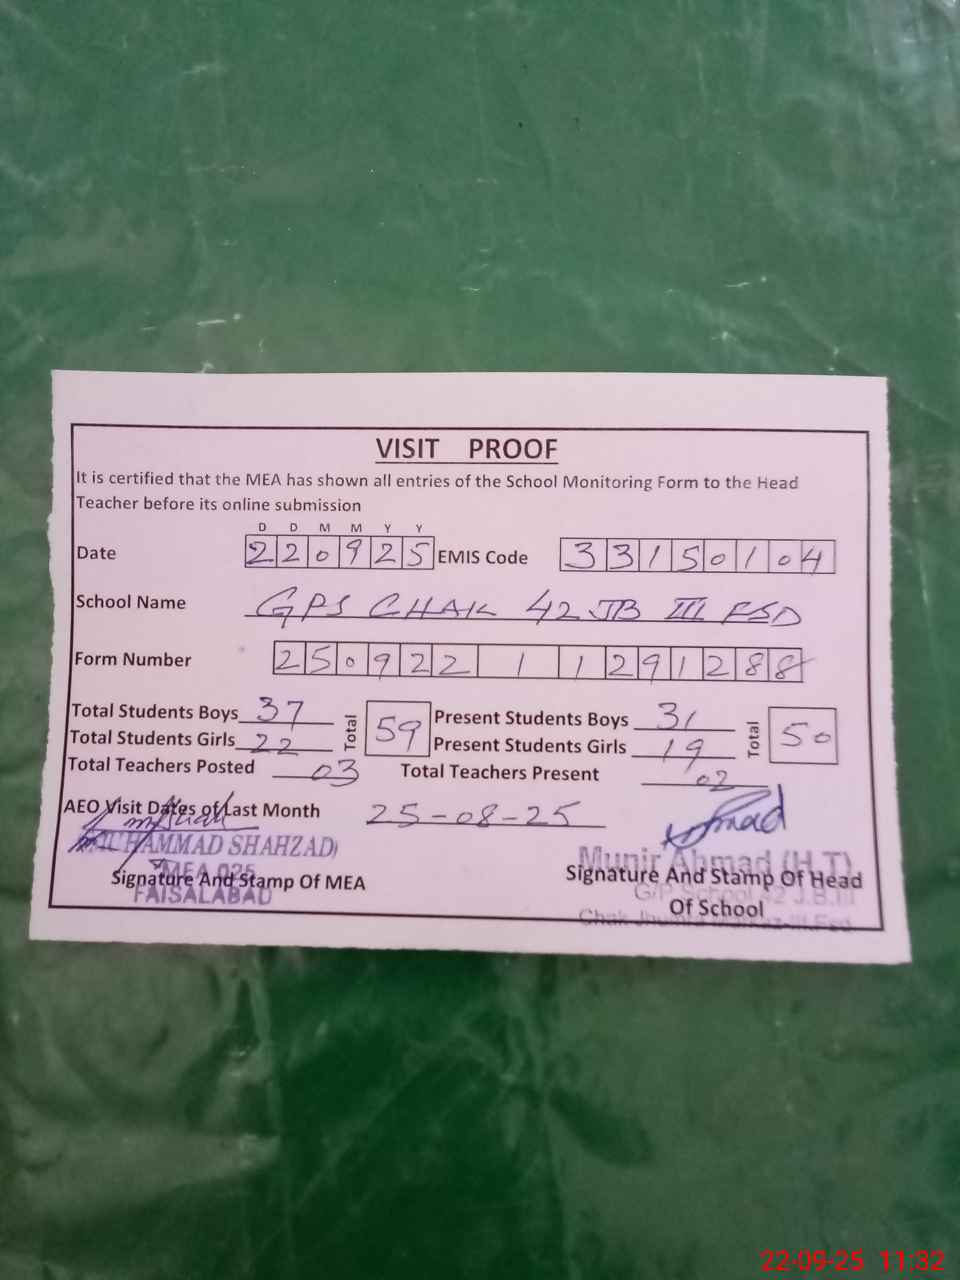 VISIT PROOF
It is certified that the MEA has shown all entries of the School Monitoring Form to the Head
Teacher before its online submission
D D M M Y Y
Date 220925 EMIS Code 33150104
School Name GPS CHAK 42 JB III FSD
Form Number 250922 1 1291288
Total Students Boys 37 Total 59 Present Students Boys 31 Total 50
Total Students Girls 22 Present Students Girls 19
Total Teachers Posted 03 Total Teachers Present 02
AEO Visit Dates of Last Month 25-08-25
MUHAMMAD SHAHZAD
MEA 025
FAISALABAD
Signature And Stamp Of MEA
Munir Ahmad (H.T)
G/P School 42 J.B.III
Signature And Stamp Of Head
Of School
22-09-25 11:32